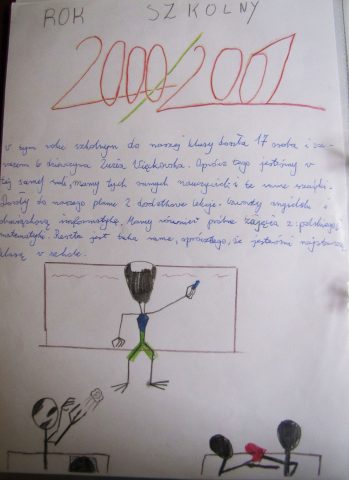 ROK SZKOLNY
2000/2001
W tym roku szkolnym do naszej klasy doszła 17 osoba i za-
razem 6 dziewczyna Zuzia Więckowska. Oprócz tego jesteśmy w
tej samej sali, mamy tych samych nauczycieli i te same książki.
Doszły do naszego planu 2 dodatkowe lekcje: czwarty angielski i
obowiązkową informatykę. Mamy również różne zajęcia z: polskiego i
matematyki. Reszta jest taka sama, oprócz tego, że jesteśmy najstarszą
klasą w szkole.